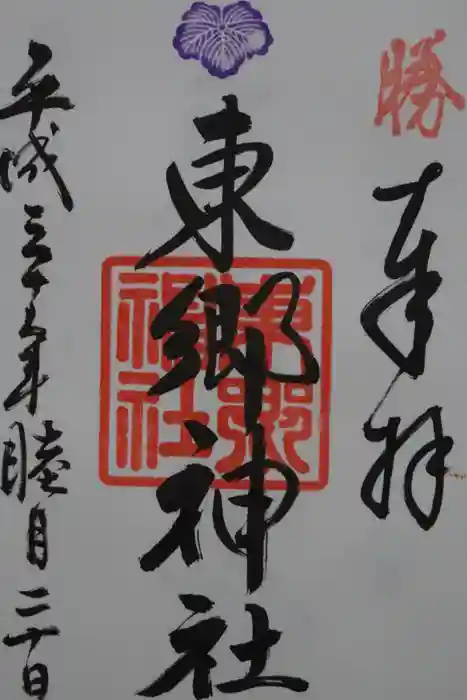 勝
奉拝
東郷神社
東郷
神社
平成三十一年睦月二十日